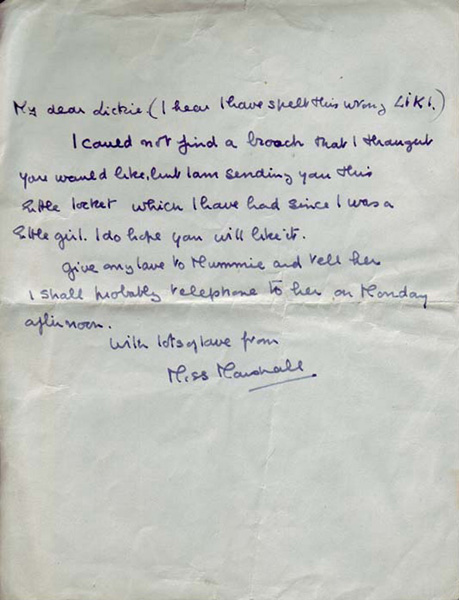 My dear Lickie. (I hear I have spelt this wrong LIKI.)
I could not find a broach that I thought
you would like, but I am sending you this
little locket which I have had since I was a
little girl. I do hope you will like it.
Give my love to Mummie and tell her
I shall probably telephone to her on Monday
afternoon.
With lots of love from
Miss Marshall.